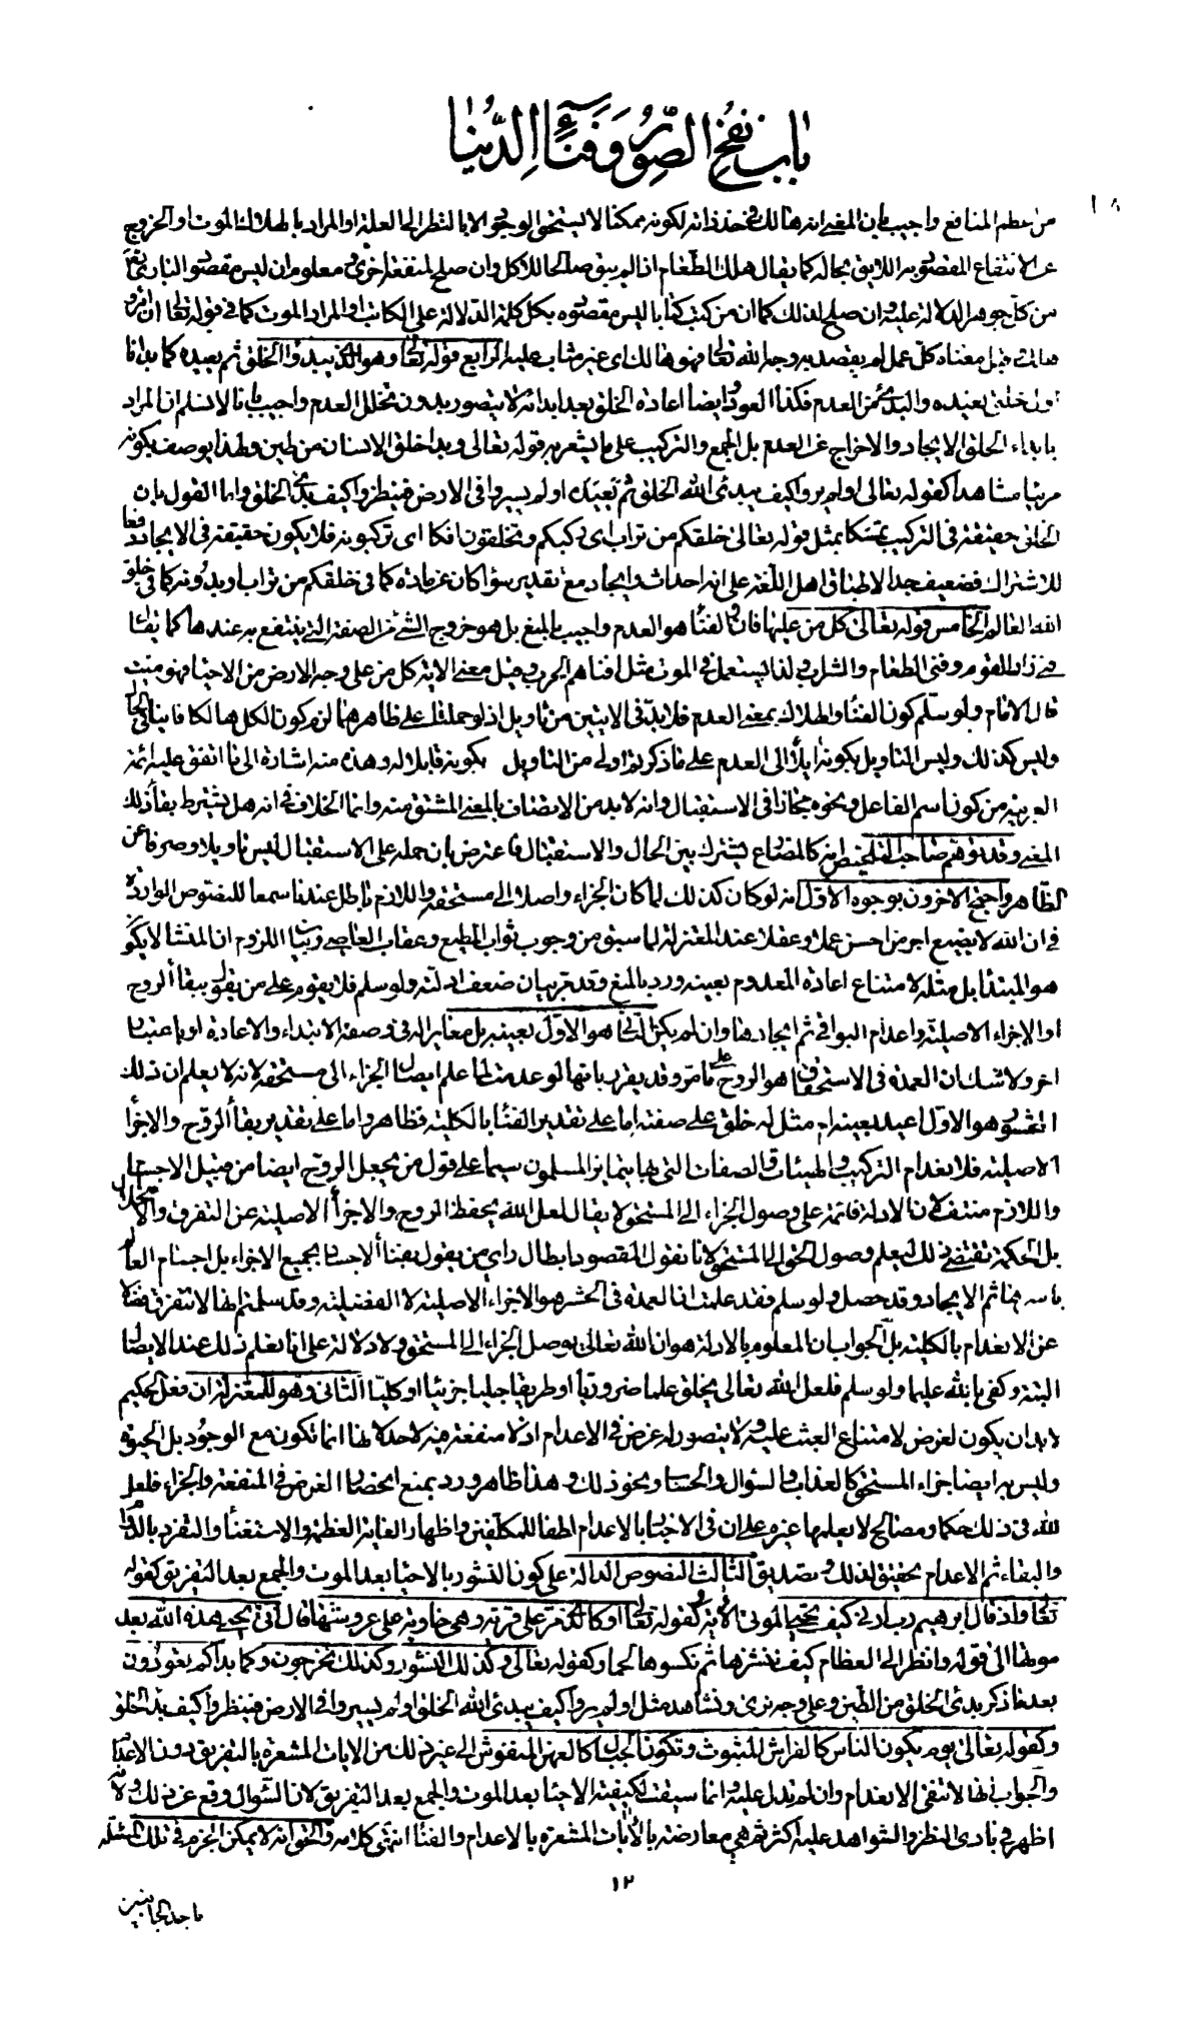 باب نفخ الصّور وَفناءِ الدُّنيا
١٨
من اعظم المنافع واجيب بان المعنى انه هالك في حد ذاته لكونه ممكنا لا يستحق الوجود الا بالنظر الى العلة او المراد بالهلاك الموت او الخروج
عن الانتفاع المقصود به اللايق بحاله كما يقال هلك الطعام اذا لم يبق صالحا للاكل وان صلح لمنفعة اخرى ومعلوم ان ليس مقصود الباري تعالى
من كل جوهر الدلالة عليه وان صلح لذلك كما ان من كتب كتابا ليس مقصوده بكل كلمة الدلالة على الكاتب او المراد الموت كما في قوله تعالى ان امرؤ
هلك وقيل معناه كل عمل لم يقصد به وجه الله تعالى فهو هالك اى غير مثاب عليه الرابع قوله تعالى وهو الذي يبدؤا الخلق ثم يعيده كما بدأنا
اول خلق نعيده والبدء من العدم فكذا العود وايضا اعادة الخلق بعد ابدائه لا يتصور بدون تخلل العدم واجيب بانا لا نسلم ان المراد
بابداء الخلق الايجاد والاخراج عن العدم بل الجمع والتركيب على ما يشعر به قوله تعالى وبدا خلق الانسان من طين ولهذا يوصف بكونه
مرئيا مشاهدا كقوله تعالى اولم يروا كيف يبدئ الله الخلق ثم يعيده اولم يسيروا في الارض فينظروا كيف بدء الخلق واما القول بان
الخلق حقيقة في التركيب تمسكا بمثل قوله تعالى خلقكم من تراب اى ركبكم وتخلقون افكا اى تركبونه فلا يكون حقيقة في الايجاد دفعا
للاشتراك فضعيف جدا لاطباق اهل اللغة على انه احداث وايجاد مع تقدير سواء كان عن مادة كما في خلقكم من تراب او بدونه كما في خلق
الله العالم الخامس قوله تعالى كل من عليها فان والفناء هو العدم واجيب بالمنع بل هو خروج الشئ عن الصفة التي ينتفع به عندها كما يقال
فنى زاد القوم وفنى الطعام والشراب ولذا يستعمل في الموت مثل افناهم الحرب وقيل معنى الاية كل من على وجه الارض من الاحياء فهو ميت
قال الامام ولو سلم كون الفناء والهلاك بمعنى العدم فلا بد في الايتين من تاويل اذ لو حملتا على ظاهرهما لزم كون الكل هالكا فانيا في الحال
وليس كذلك وليس التاويل بكونه آيلا الى العدم على ما ذكرتم اولى من التاويل بكونه قابلا له وهذه منه اشارة الى ما اتفق عليه ائمة
العربية من كون اسم الفاعل ونحوه مجازا في الاستقبال وانه لا بد من الاتصاف بالمعنى المشتق منه وانما الخلاف في انه هل يشترط بقاء ذلك
المعنى وقد توهم صاحب التلخيص انه كالمضارع يشترك بين الحال والاستقبال فاعترض بان حمله على الاستقبال ليس تاويلا وصرفا عن
الظاهر واحتج الاخرون بوجوه الاول انه لو كان كذلك لما كان الجزاء واصلا الى مستحقه واللازم باطل عندنا سمعا للنصوص الواردة
في ان الله لا يضيع اجر من احسن عملا وعقلا عند المعتزلة لما سبق من وجوب ثواب المطيع وعقاب العاصي وبيان اللزوم ان المنشا لا يكون
هو المبتدا بل مثله لامتناع اعادة المعدوم بعينه ورد بالمنع وقد مر بيان ضعف ادلته ولو سلم فلا يقوم على من يقول ببقاء الروح
او الاجزاء الاصلية واعدام البواقي ثم ايجادها وان لم يكن الثاني هو الاول بعينه بل مغايرا له في وصفه الابتداء والاعادة او باعتبار
اخر ولا شك ان العمدة في الاستحقاق هو الروح على ما مر وقد يقرر بانها لو عدمت لما علم ايصال الجزاء الى مستحقه لانه لا يعلم ان ذلك
المحشور هو الاول اعيد بعينه ام مثل له خلق على صفته اما على تقدير الفناء بالكلية فظاهر واما على تقدير بقاء الروح والاجزاء
الاصلية فلانعدام التركيب والهيئات والصفات التى بها يتمايز المسلمون سيما على قول من يجعل الروح ايضا من قبيل الاجسام
واللازم منتف لان الادلة قائمة على وصول الجزاء الى المستحق لا يقال لعل الله يحفظ الروح والاجزاء الاصلية عن التفرق والانحلال
بل الحكمة تقتضي ذلك ليعلم وصول الحق الى المستحق لانا نقول المقصود ابطال راي من يقول بفناء الاجساد بجميع الاجزاء بل اجسام العالم
باسرها ثم الايجاد وقد حصل ولو سلم فقد علمت ان العمدة في الحشر هو الاجزاء الاصلية لا الفضلية وقد سلمتم انها لا تتفرق فضلا
عن الانعدام بالكلية بل الجواب ان المعلوم بالادلة هو ان الله تعالى يوصل الجزاء الى المستحق ولا دلالة على انا نعلم ذلك عند الايصال
البتة وكفى بالله عليما ولو سلم فلعل الله تعالى يخلق علما ضروريا او طريقا جليا جزئيا او كليا الثاني وهو للمعتزلة ان فعل الحكيم
لا بد ان يكون لغرض لامتناع العبث عليه ولا يتصور له غرض في الاعدام اذ لا منفعة فيه لاحد لانها انما تكون مع الوجود بل الحيوة
وليس به ايضا جزاء المستحق كالعذاب والسؤال والحساب ونحو ذلك وهذا ظاهر ورد بمنع انحصار الغرض في المنفعة والجزاء فلعل
لله في ذلك حكما ومصالح لا يعلمها غيره على ان في الاخبار بالاعدام لطفا للمكلفين واظهار الغاية العظمة والاستغناء والتفرد بالدوام
والبقاء ثم الاعدام تحقيق لذلك وتصديق الثالث النصوص الدالة على كون النشور بالاحياء بعد الموت والجمع بعد التفريق كقوله
تعالى واذ قال ابرهيم رب ارني كيف تحيي الموتى الآية وكقوله تعالى او كالذي مر على قرية وهي خاوية على عروشها قال انى يحيي هذه الله بعد
موتها الى قوله وانظر الى العظام كيف ننشزها ثم نكسوها لحما وكقوله تعالى وكذلك النشور وكذلك تخرجون وكما بداكم تعودون
بعد ما ذكر بدئ الخلق من الطين وعلى وجه نرى ونشاهد مثل اولم يروا كيف يبدئ الله الخلق اولم يسيروا في الارض فينظروا كيف بدا الخلق
وكقوله تعالى يوم يكون الناس كالفراش المبثوث وتكون الجبال كالعهن المنفوش الى غير ذلك من الايات المشعرة بالتفريق دون الاعدام
والجواب انها لا تنفي الانعدام وان لم تدل عليه وانما سيقت لكيفية الاحياء بعد الموت والجمع بعد التفريق لان السؤال وقع عن ذلك ولانه
اظهر في بادي النظر والشواهد عليه اكثر ثم هي معارضة بالآيات المشعرة بالاعدام والفناء انتهى كلامه والحق انه لا يمكن الجزم في تلك المسئلة
١٢
باحد الجانبين